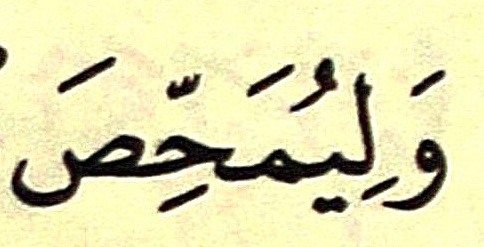 وَلِيُمَحِّصَ